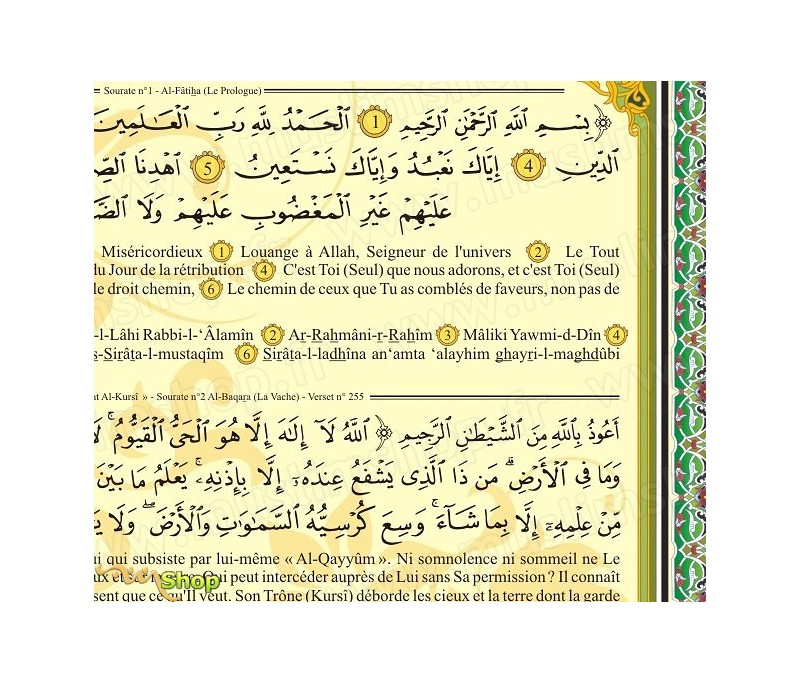 Sourate n°1 - Al-Fâtiha (Le Prologue)
بِسْمِ اللَّهِ الرَّحْمَٰنِ الرَّحِيمِ 1 الْحَمْدُ لِلَّهِ رَبِّ الْعَالَمِينَ
الدِّينِ 4 إِيَّاكَ نَعْبُدُ وَإِيَّاكَ نَسْتَعِينُ 5 اهْدِنَا
عَلَيْهِمْ غَيْرِ الْمَغْضُوبِ عَلَيْهِمْ وَلَا
Miséricordieux 1 Louange à Allah, Seigneur de l'univers 2 Le Tout
du Jour de la rétribution 4 C'est Toi (Seul) que nous adorons, et c'est Toi (Seul)
le droit chemin, 6 Le chemin de ceux que Tu as comblés de faveurs, non pas de
-l-Lâhi Rabbi-l-‘Âlamîn 2 Ar-Rahmâni-r-Rahîm 3 Mâliki Yawmi-d-Dîn 4
s-Sirâta-l-mustaqîm 6 Sirâta-l-ladhîna an‘amta ‘alayhim ghayri-l-maghdûbi
at Al-Kursî » - Sourate n°2 Al-Baqara (La Vache) - Verset n° 255
أَعُوذُ بِاللَّهِ مِنَ الشَّيْطَٰنِ الرَّجِيمِ اللَّهُ لَا إِلَٰهَ إِلَّا هُوَ الْحَيُّ الْقَيُّومُ ۚ لَا
وَمَا فِي الْأَرْضِ ۗ مَن ذَا الَّذِي يَشْفَعُ عِندَهُ إِلَّا بِإِذْنِهِ ۚ يَعْلَمُ مَا بَيْنَ
مِّنْ عِلْمِهِ إِلَّا بِمَا شَاءَ ۚ وَسِعَ كُرْسِيُّهُ السَّمَٰوَٰتِ وَالْأَرْضَ ۖ وَلَا
ui qui subsiste par lui-même « Al-Qayyûm ». Ni somnolence ni sommeil ne Le
ux et Qui peut intercéder auprès de Lui sans Sa permission ? Il connaît
sent que ce qu'Il veut. Son Trône (Kursî) déborde les cieux et la terre dont la garde
Shop